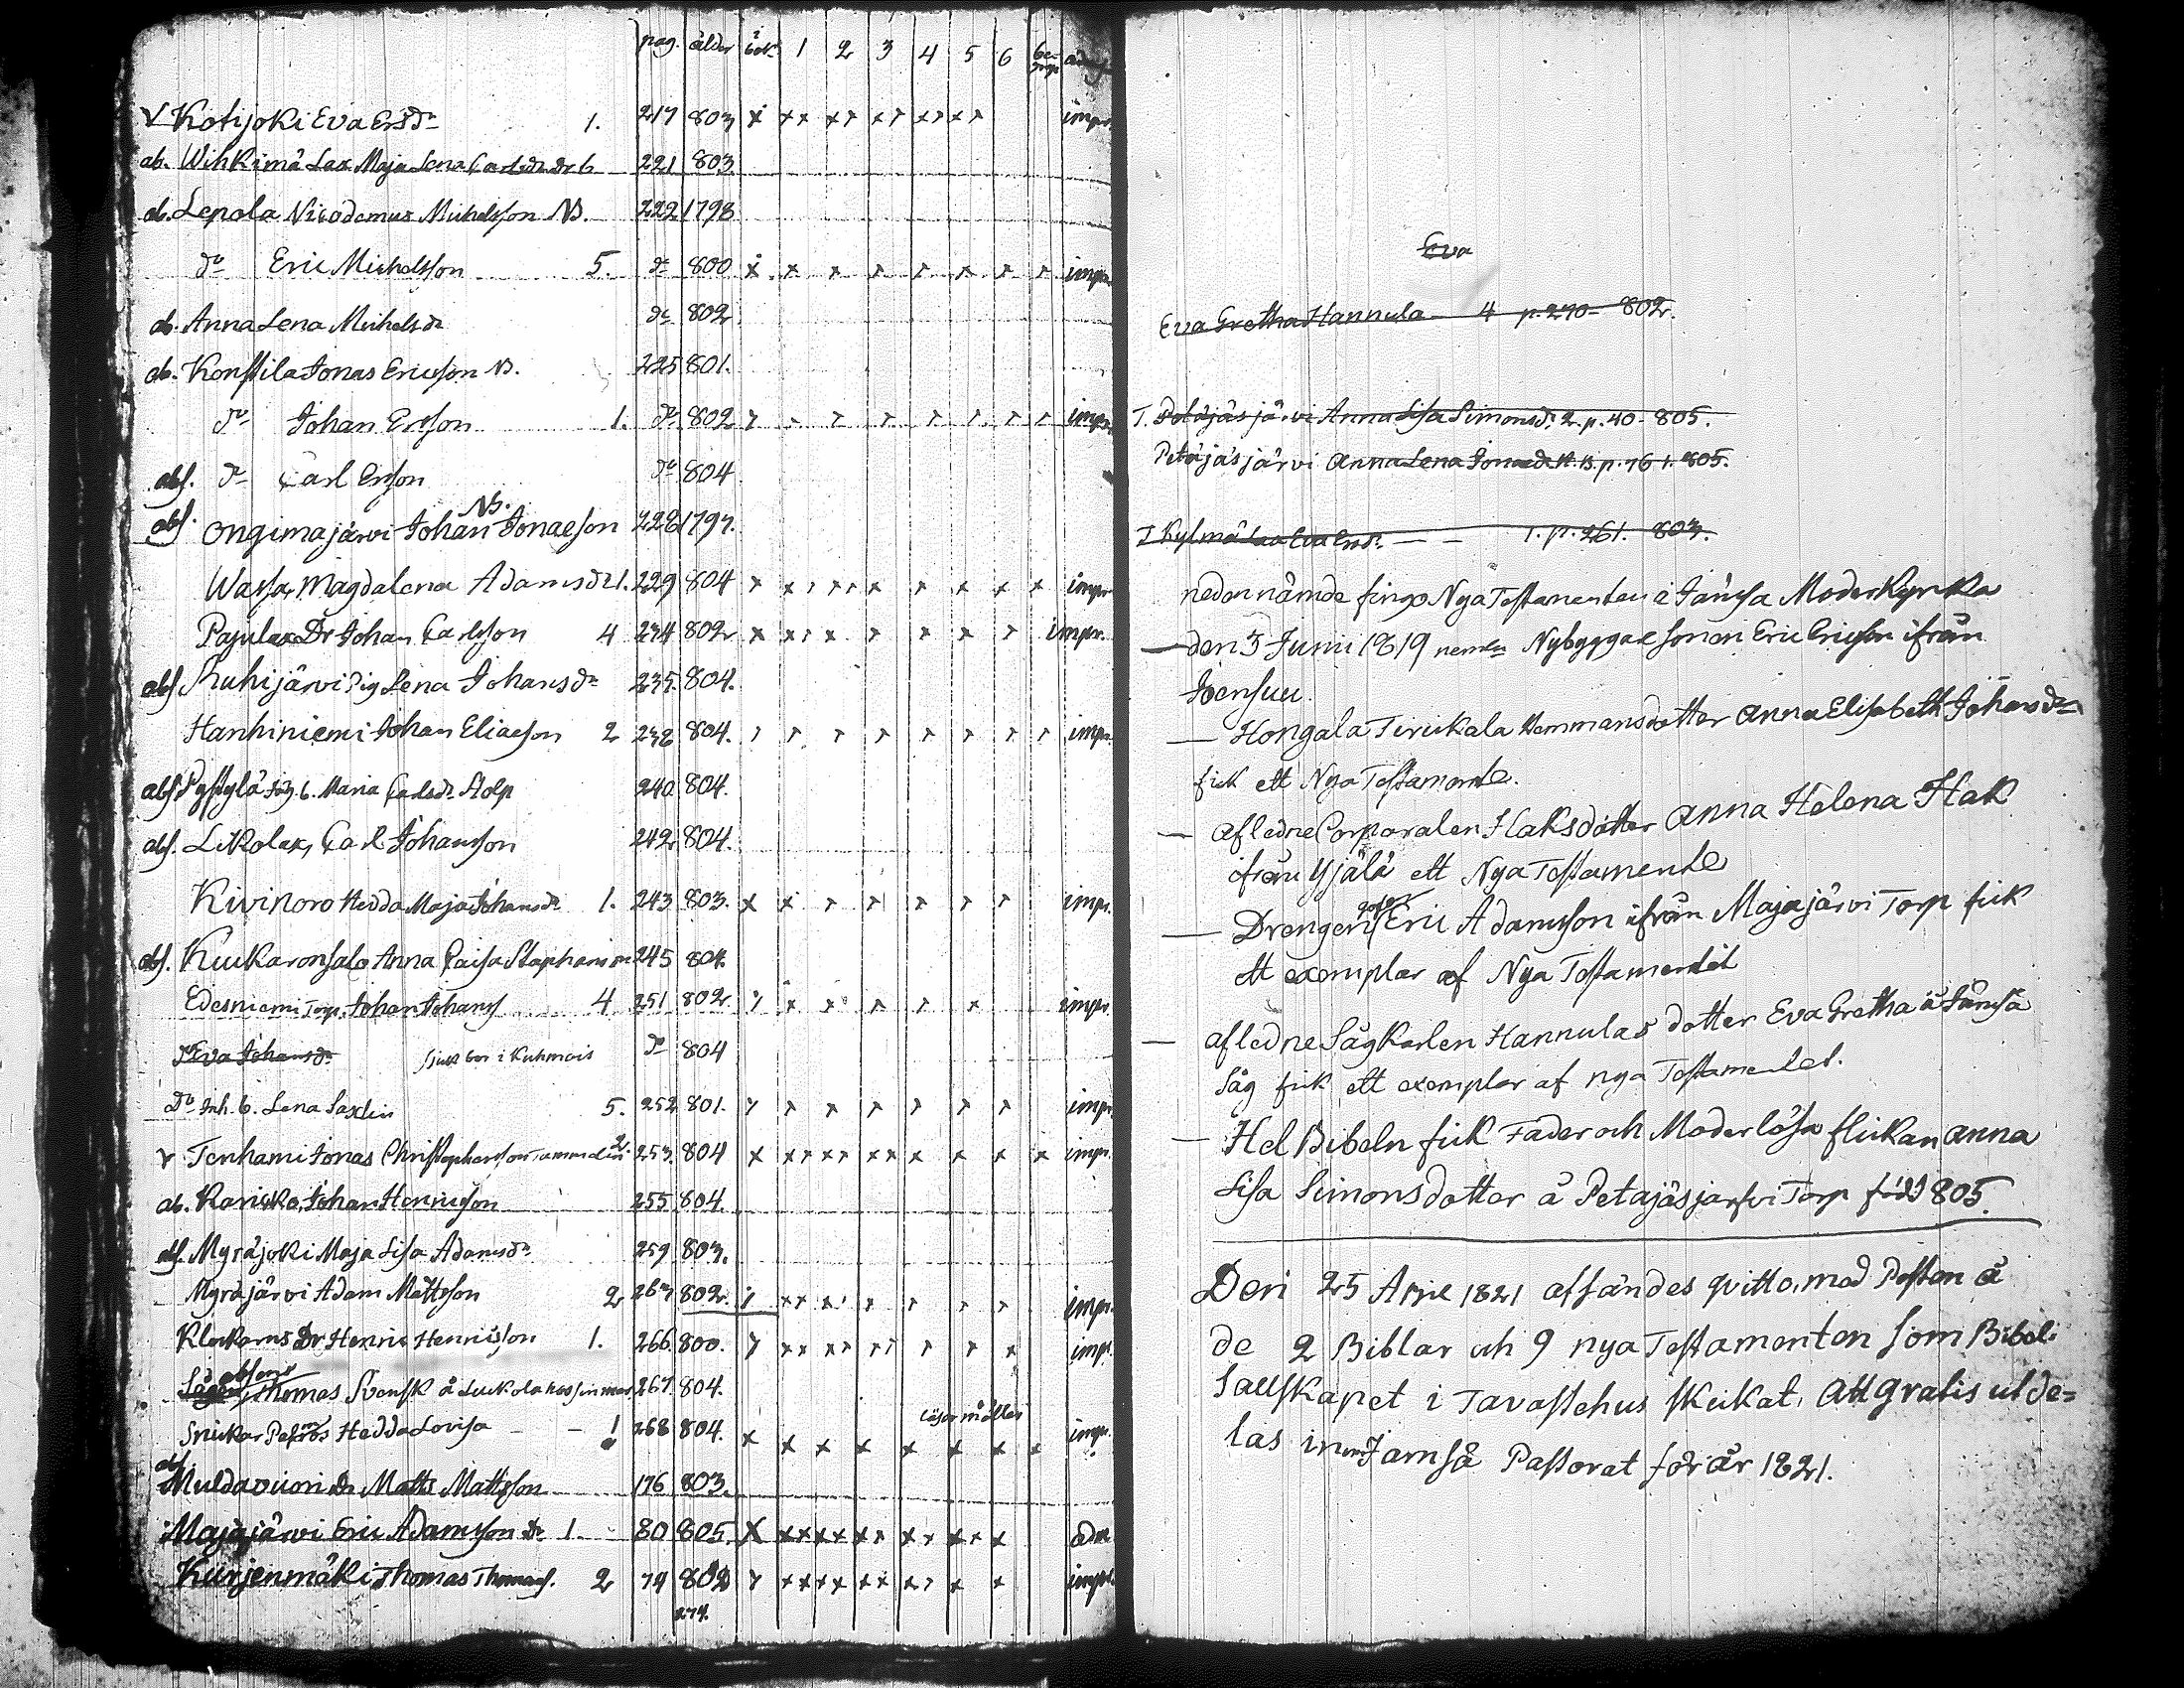 pag. ålder i bok 1 2 3 4 5 6
v Kotijoki Eva Ersdr 1. 217 803 impr.
ab. Wihkimä Lax. Maja Lena Carlsdr Dr 6 221 803.
ab. Lepola Nicodemus Michelsson NB. 222 1798
do Eric Michelsson 5. do 800 impr.
ab. Anna Lena Michelsdr do 802
ab. Konstila Jonas Ericsson NB. 225 801.
do Johan Ersson 1. do 802 impr.
abs. do Carl Ersson do 804
NB.
abs. Ongimajärvi Johan Jonaeson 228 1797.
Wassa, Magdalena Adamsdr 1. 229 804 impr.
Pajulax Dr Johan Carlsson 4 234 802 impr.
abs. Ruhijärvi Pig Lena Johansdr 235. 804.
Hanhiniemi Johan Eliaeson 2 238 804. impr.
abs. Pystylä Maria Carlsdr Stolp 240. 804.
abs. Likolax, Carl Johansson 242 804.
Kivinoro Hedda Maja Johansdr 1. 243 803. impr.
abs. Kuukaronsalo Anna Caisa 245 804.
Edesniemi Torp. Johan Johans 4 251 802. impr.
do Eva Johansdr sjuk bor i Kuhmois do 804
Do Inh. b. Lena Saxlin 5. 252 801. impr.
v Tenhami Jonas Christophersson 2. 253. 804 impr.
ab. Johan Henricsson 255 804.
abs. Myräjoki Maja Lisa Adamsdr 259 803.
Myräjärvi Adam Mattsson 2 263 802. impr.
Klockarns Dr Henric Henricsson 1. 266 800. impr.
absens
Thomas Svensk å 267 804.
läser måtlei
Snickar Hedda Lovisa 1 268 804. impr.
abs
Muldavuori Dr Matts Mattsson 176 803.
Majajärvi Eric Adamsson Dr 1. 80 805.
Kurjenmäki Thomas Thomass. 2 74 802 impr.
274.
Eva
Eva Gretha Hannula 4 p. 270 - 802.
T. Petäjäsjärvi Anna Lisa Simonsdr. 2. p. 40 - 805.
Petäjäsjärvi Anna Lena Jonaedr p. 76 1. 805.
T Kylmä Eva Ersdr 1. p. 261. 803.
nedannämde fingo Nya Testamenten i Jämsä Moderkyrka
den 3 Junii 1819 nemln Nybyggare sonen Eric Ericsson ifrån
Joensuu.
Hongala Tirickala Hemmansdotter Anna Elisabeth Johansdr
fick ett Nya Testamente.
afledne Corporalen Haks dotter Anna Helena Hak
ifrån Yjälä ett Nya Testamente
Drengen Eric Adamsson ifrån Majajärvi Torp fick
ett exemplar af Nya Testamentet
afledne Sågkarlen Hannulas dotter Eva Gretha å Jämsä
Såg fick ett exemplar af nya Testamentet.
Hel Bibeln fick Fader och Moderlösa flickan Anna
Lisa Simonsdotter å Petäjäsjärfvi Torp född 805.
Den 25 April 1821 afsändes qvitto, med Posten å
de 2 Biblar och 9 nya Testamenten som Bibel
Sällskapet i Tavastehus skickat, att gratis utde=
las inom Jämsä Pastorat för år 1821.